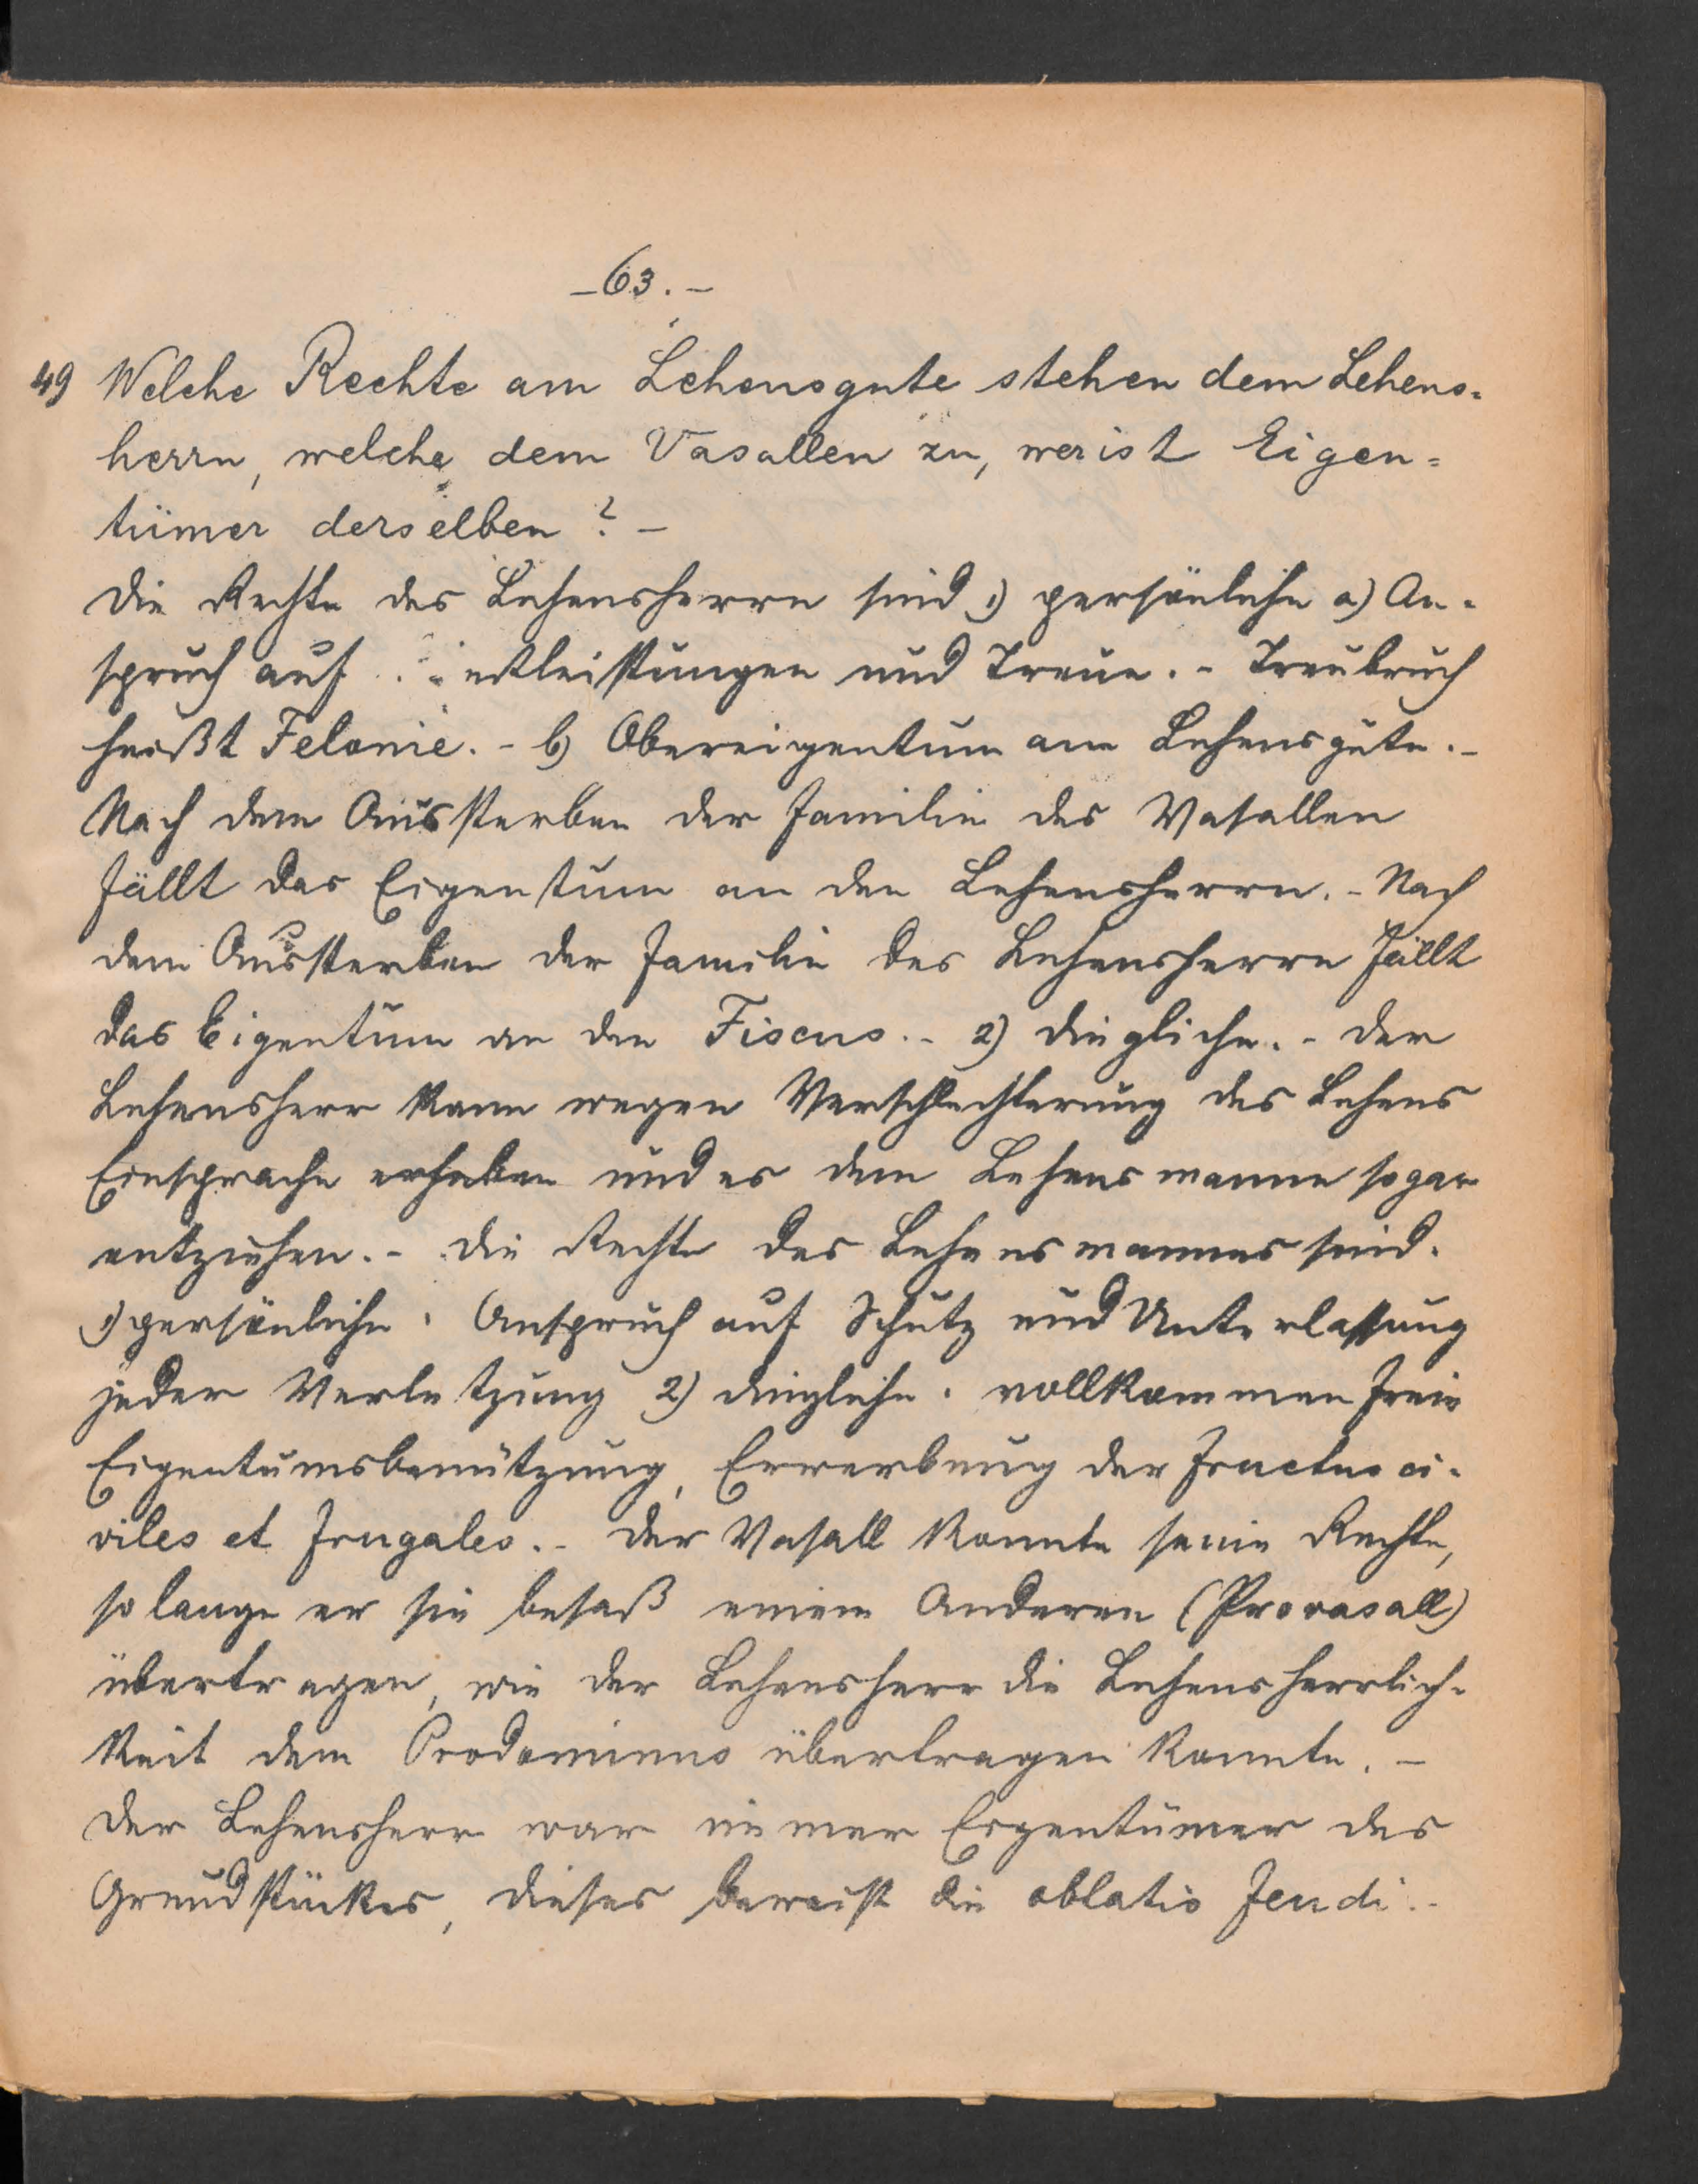 -63.-
49 Welche Rechte am Lehensgute stehen dem Lehens-
herrn, welche dem Vasallen zu, wer ist Eigen-
tümer derselben? -
Die Rechte des Lehensherrn sind 1) persönliche a) An-
spruch auf und Treue. - Treubruch
heißt Felonie. - b) Obereigentum am Lehensgute. -
Nach dem Aussterben der Familie des Vasallen
fällt das Eigentum an den Lehensherrn. - Nach
dem Aussterben der Familie des Lehensherrn fällt
das Eigentum an den Fiscus. - 2) dingliche. - Der
Lehensherr kann wegen Verschlechterung des Lehens
Einsprache erheben und es dem Lehensmanne sogar
entziehen. - Die Rechte des Lehensmannes sind.
1) persönliche. Anspruch auf Schutz und Unterlassung
jeder Verletzung 2) dingliche. vollkommen freie
Eigentumsbenützung, Erwerbung der fructus ci-
viles et frugales. - Der Vasall konnte seine Rechte,
so lange er sie besaß einem Anderen (Provasall)
übertragen, wie der Lehensherr die Lehensherrlich-
keit dem Prodominus übertragen konnte. -
Der Lehensherr war immer Eigentümer des
Grundstückes, dieses beweist die oblatio feudi. -